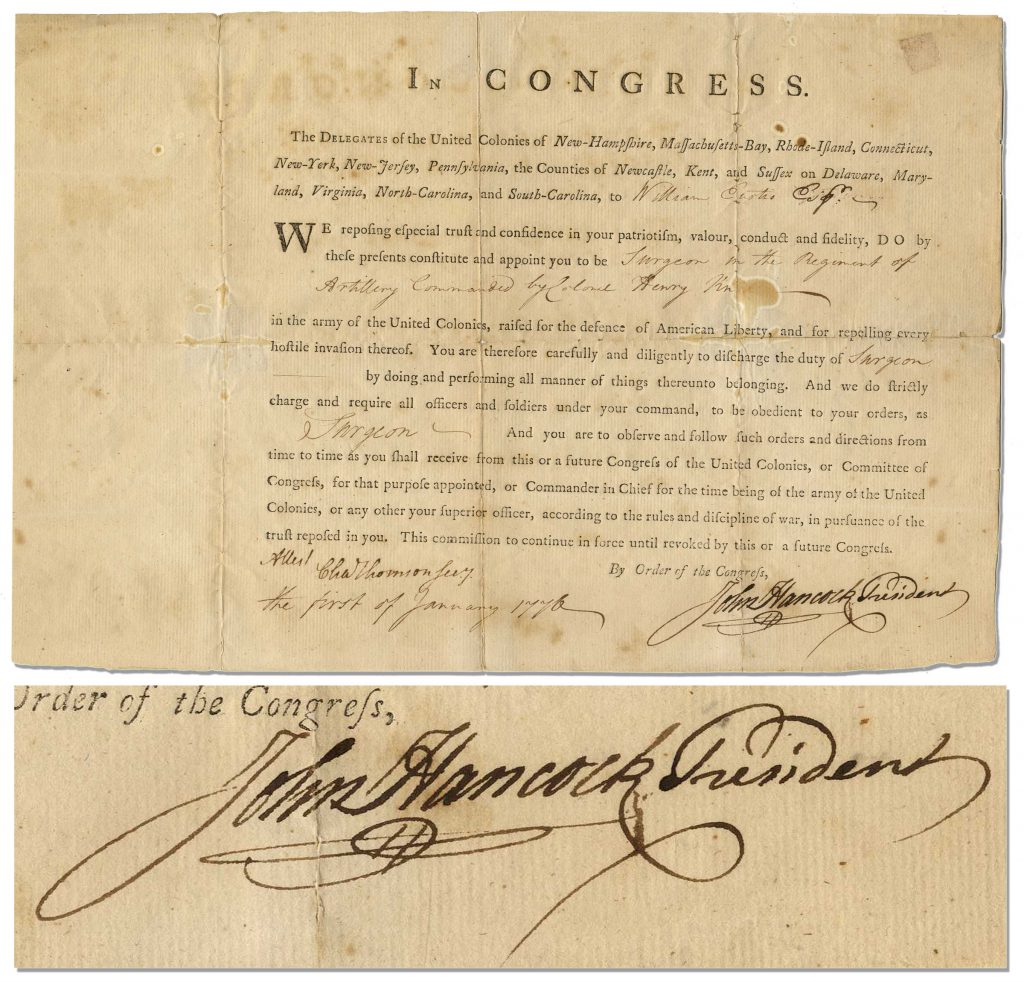 IN CONGRESS.
The DELEGATES of the United Colonies of New-Hampſhire, Maſſachuſetts-Bay, Rhode-Iſland, Connecticut,
New-York, New-Jerſey, Pennſylvania, the Counties of Newcaſtle, Kent, and Suſſex on Delaware, Mary-
land, Virginia, North-Carolina, and South-Carolina, to William Eustis Esqr.
WE repoſing eſpecial truſt and confidence in your patriotiſm, valour, conduct and fidelity, DO by
theſe preſents conſtitute and appoint you to be Surgeon in the Regiment of
Artillery Commanded by Colonel Henry
in the army of the United Colonies, raiſed for the defence of American Liberty, and for repelling every
hoſtile invaſion thereof. You are therefore carefully and diligently to diſcharge the duty of Surgeon
by doing and performing all manner of things thereunto belonging. And we do ſtrictly
charge and require all officers and ſoldiers under your command, to be obedient to your orders, as
Surgeon And you are to obſerve and follow ſuch orders and directions from
time to time as you ſhall receive from this or a future Congreſs of the United Colonies, or Committee of
Congreſs, for that purpoſe appointed, or Commander in Chief for the time being of the army of the United
Colonies, or any other your ſuperior officer, according to the rules and diſcipline of war, in purſuance of the
truſt repoſed in you. This commiſſion to continue in force until revoked by this or a future Congreſs.
Attest Chas Thomson secy.
By Order of the Congreſs,
the first of January 1776
John Hancock President
Order of the Congreſs,
John Hancock President